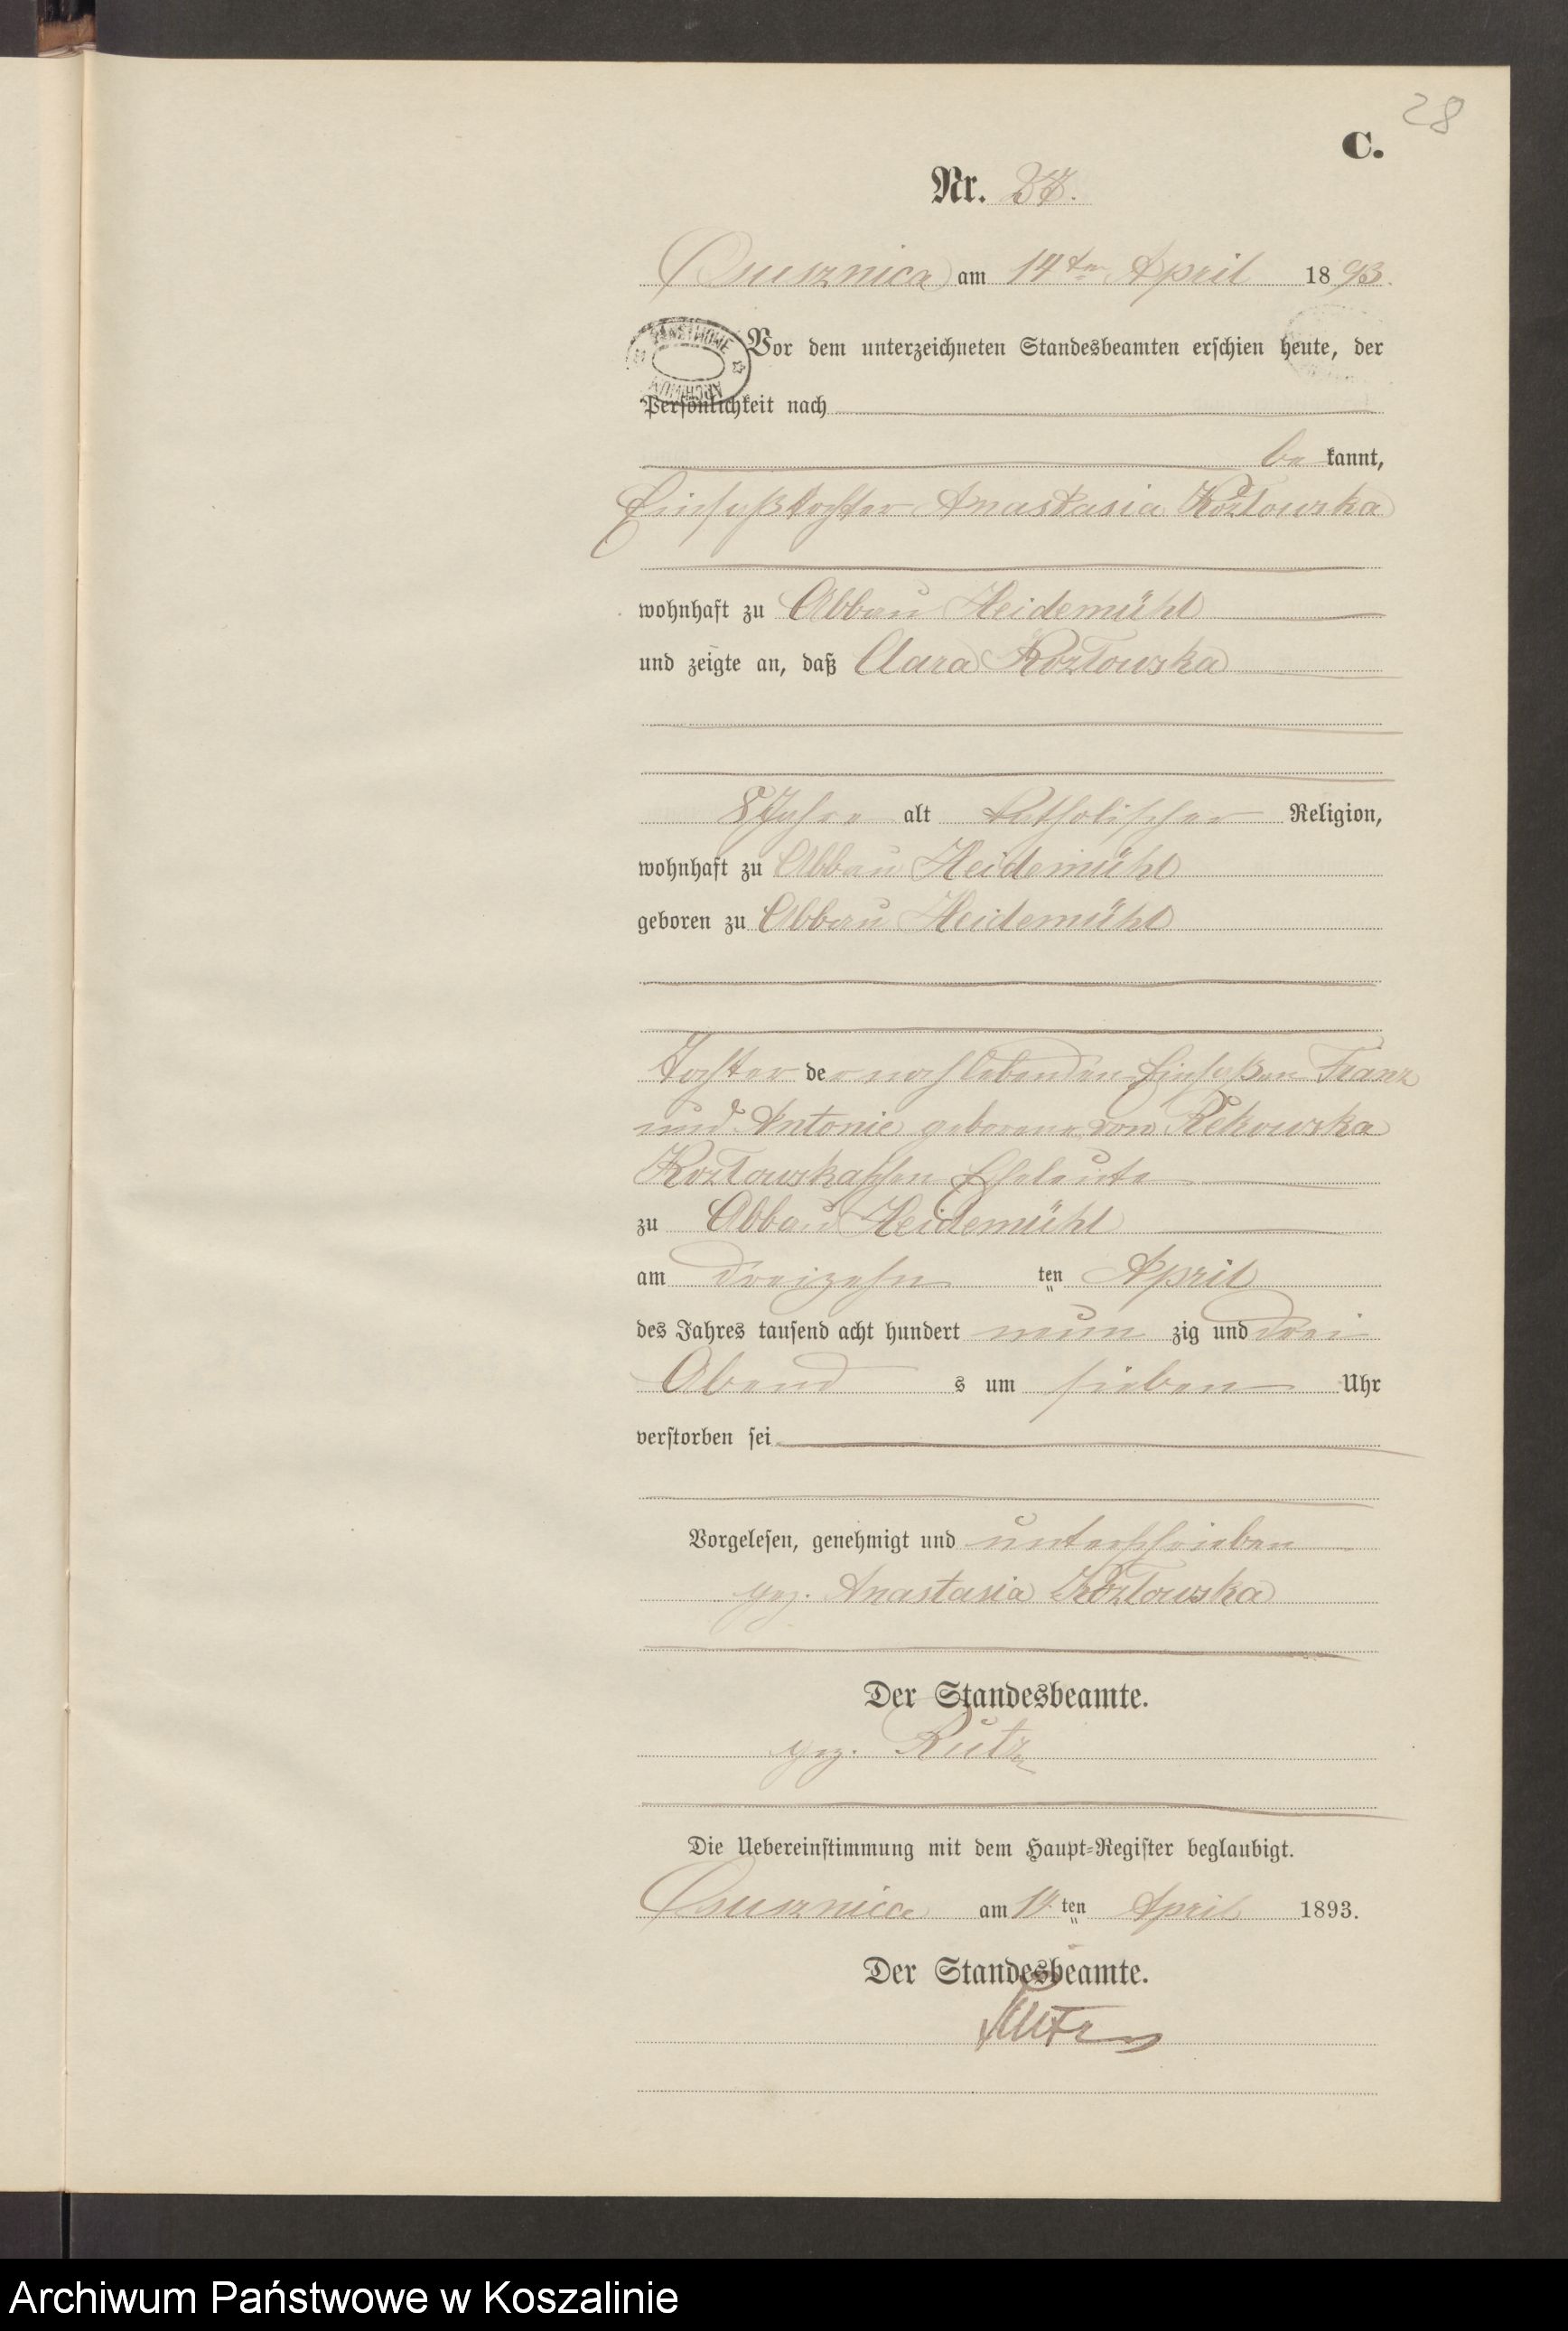 28
C.
Nr. 27.
Ossusznica am 14ten April 1893.
Vor dem unterzeichneten Standesbeamten erschien heute, der
Persönlichkeit nach
be kannt,
Einsaßtochter Anastasia Kozlowska
wohnhaft zu Abbau Heidemühl
und zeigte an, daß Clara Kozlowska
8 Jahre alt katholischer Religion,
wohnhaft zu Abbau Heidemühl
geboren zu Abbau Heidemühl
Tochter der noch lebenden Einsaßen Franz
und Antonie geborene von Rekowska
Kozlowskaschen Eheleute
zu Abbau Heidemühl
am dreizehn ten April
des Jahres tausend acht hundert neun zig und drei
Abend s um sieben Uhr
verstorben sei
Vorgelesen, genehmigt und unterschrieben
gez. Anastasia Kozlowska
Der Standesbeamte.
gez. Rutz
Die Uebereinstimmung mit dem Haupt-Register beglaubigt.
am 14 ten April 1893.
Der Standesbeamte.
Rutz
Archiwum Państwowe w Koszalinie